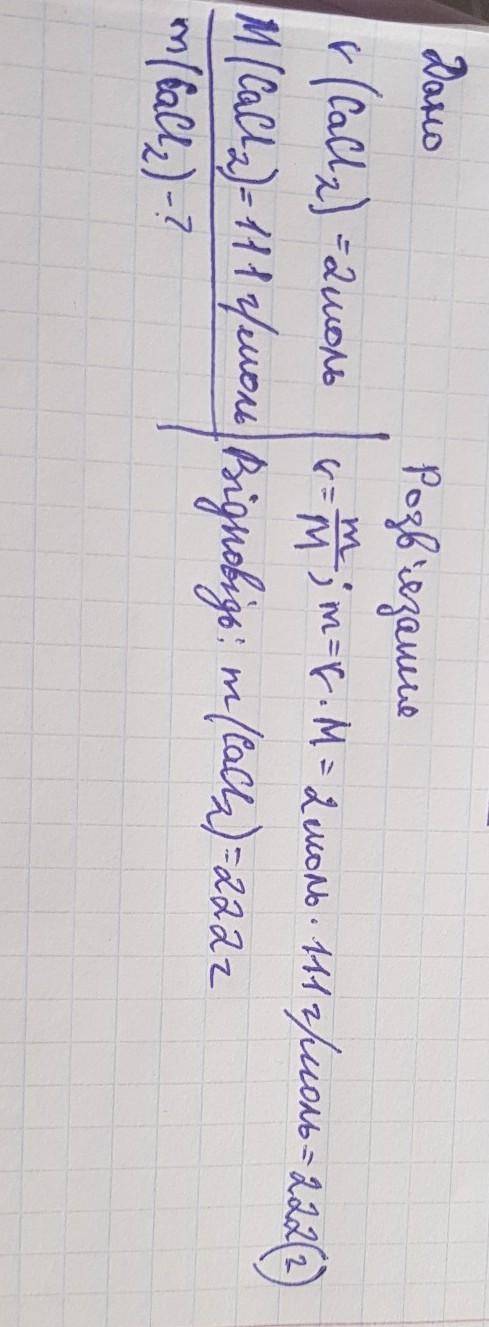 Дано
ν(CaCl₂) = 2моль
M(CaCl₂) = 111 г/моль
m(CaCl₂) - ?
Розв'язання
ν = m/M; m = ν · M = 2 моль · 111 г/моль = 222(г)
Відповідь: m(CaCl₂) = 222 г